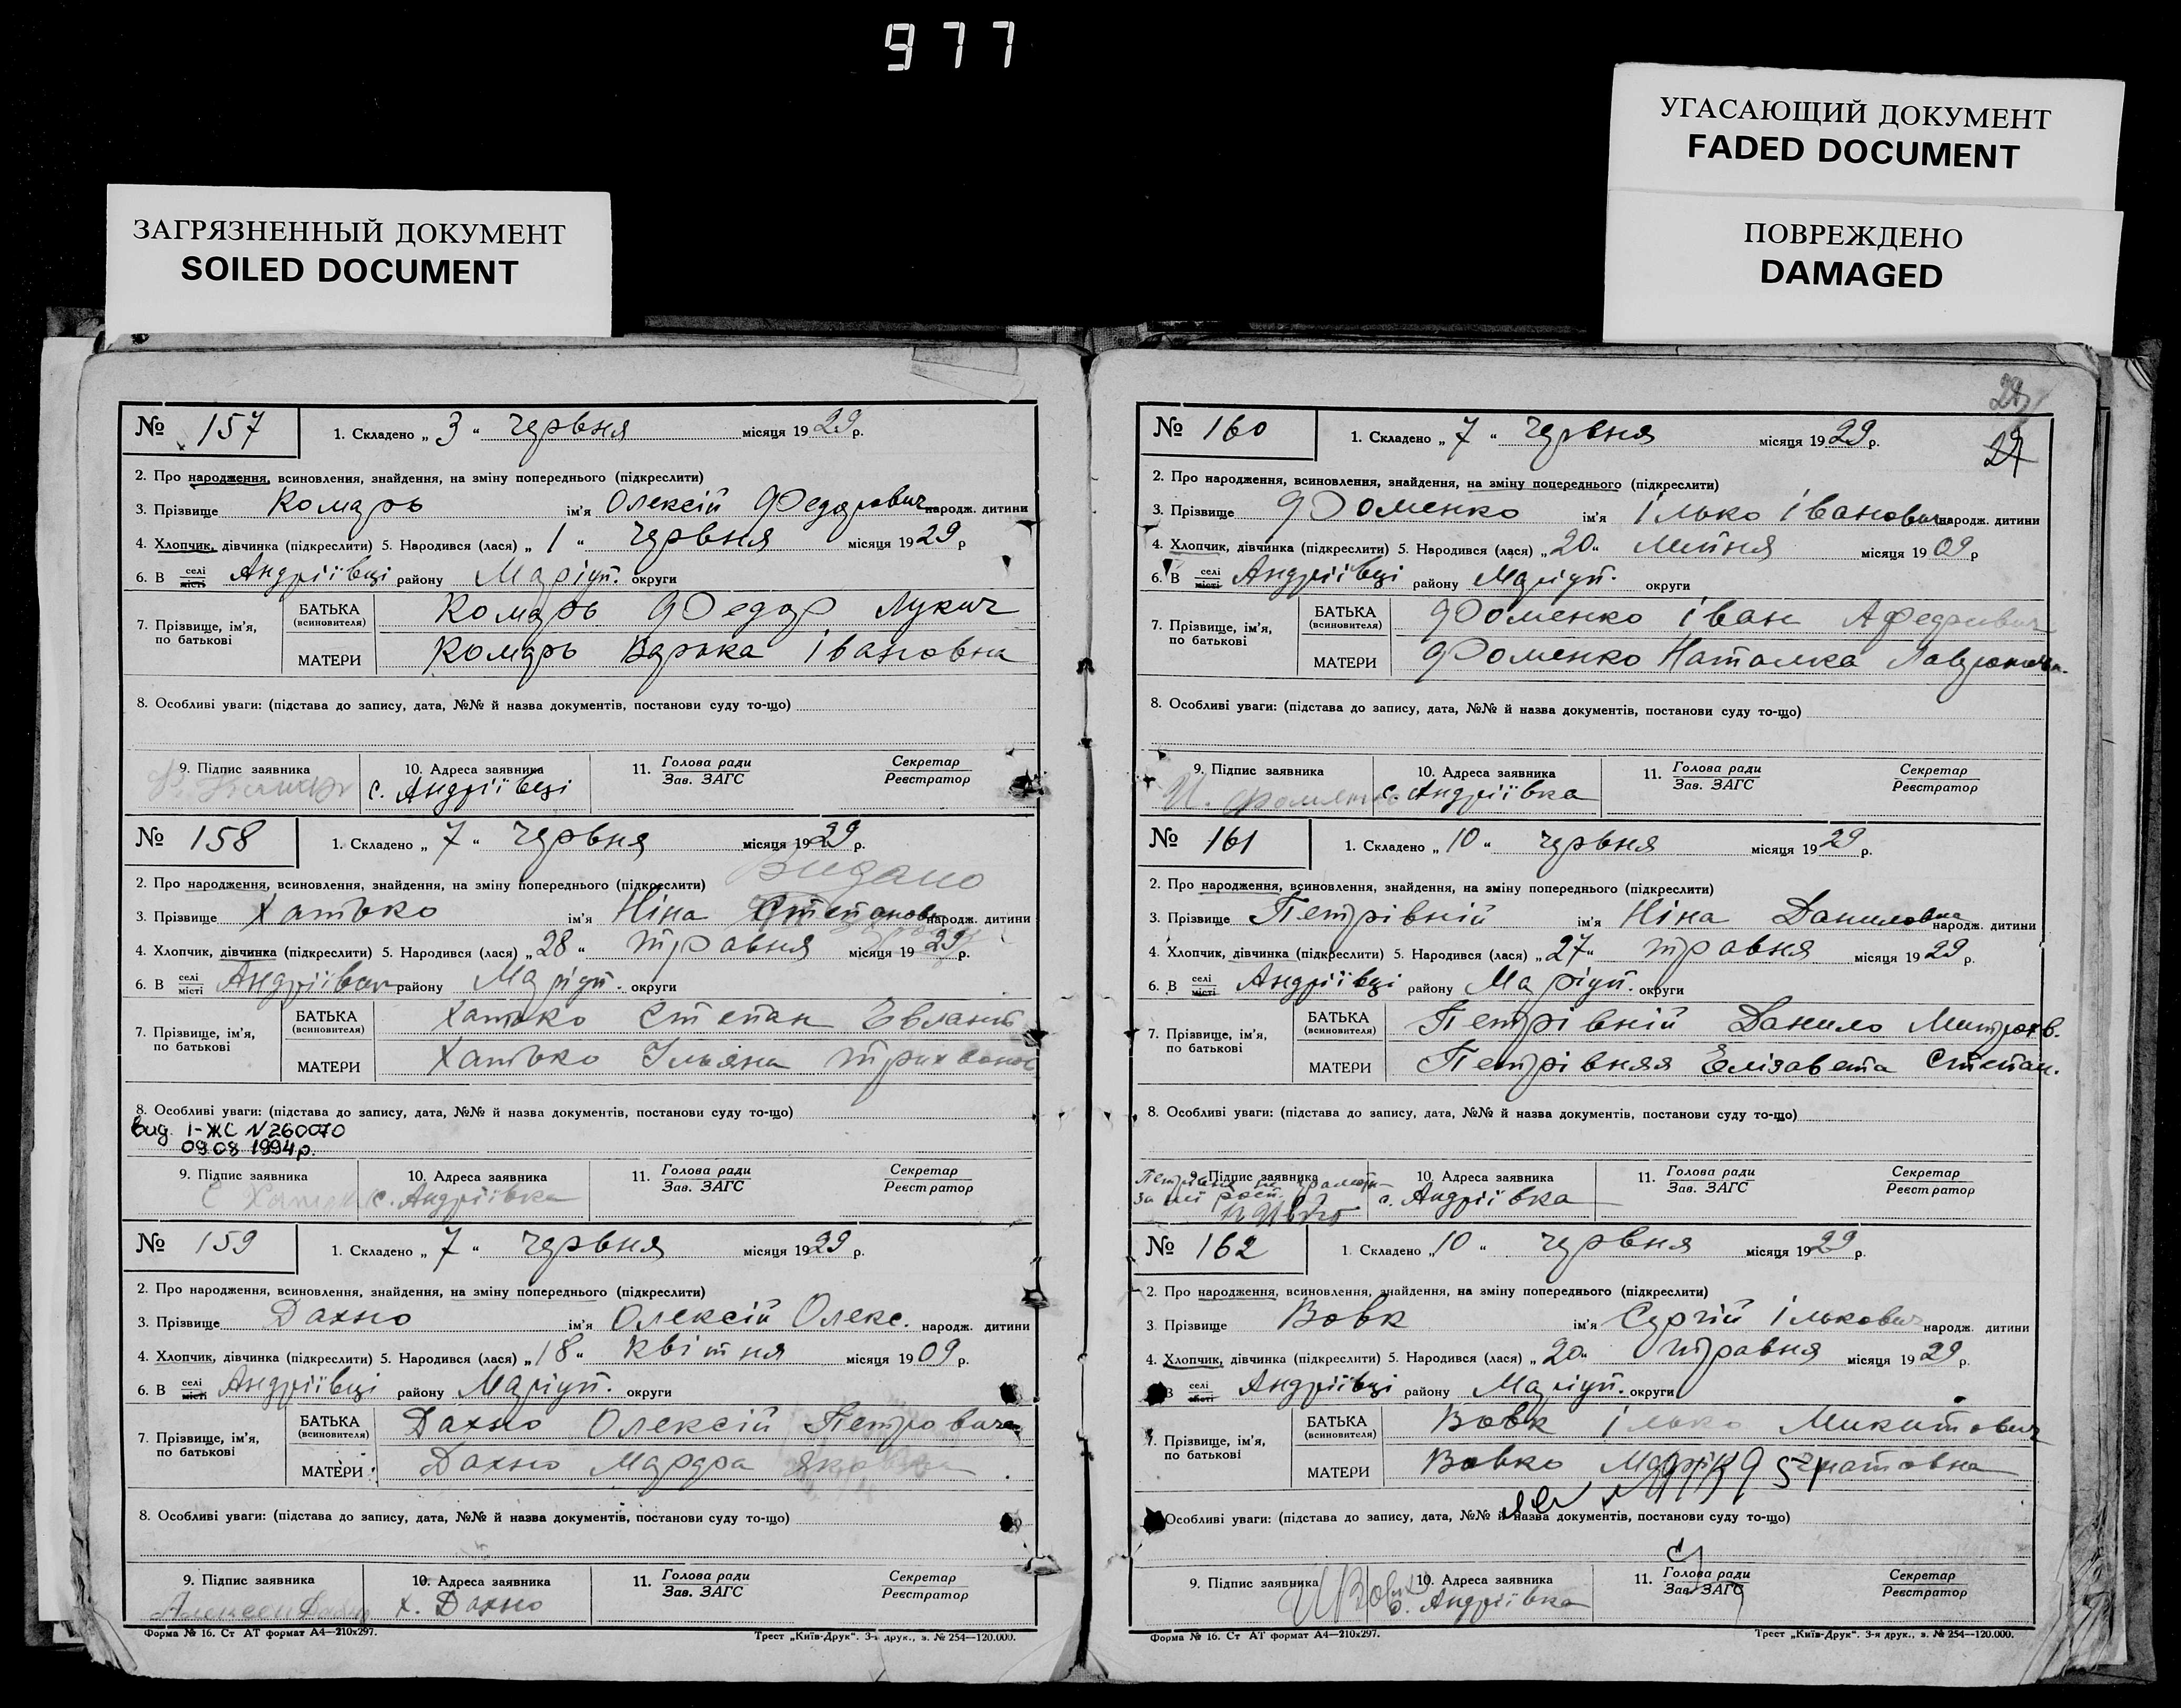 977
ЗАГРЯЗНЕННЫЙ ДОКУМЕНТ
SOILED DOCUMENT
УГАСАЮЩИЙ ДОКУМЕНТ
FADED DOCUMENT
ПОВРЕЖДЕНО
DAMAGED
№ 157 1. Складено „ 3 “ червня місяця 1929 р.
2. Про народження, всиновлення, знайдення, на зміну попереднього (підкреслити)
3. Прізвище Комарь ім'я Олексій Федорович народж. дитини
4. Хлопчик, дівчинка (підкреслити) 5. Народився (лася) „ 1 “ червня місяця 1929 р
6. В селі місті Андріївці району Маріуп. округи
7. Прізвище, ім'я, по батькові
БАТЬКА (всиновителя) Комарь Федор Лукич
МАТЕРИ Комарь Варька Івановна
8. Особливі уваги: (підстава до запису, дата, №№ й назва документів, постанови суду то-що)
9. Підпис заявника 10. Адреса заявника 11. Голова ради Зав. ЗАГС Секретар Реєстратор
с. Андріївці
№ 158 1. Складено „ 7 “ червня місяця 1929 р.
Видано
2. Про народження, всиновлення, знайдення, на зміну попереднього (підкреслити)
3. Прізвище Хатько ім'я Ніна Степановн народж. дитини
4. Хлопчик, дівчинка (підкреслити) 5. Народився (лася) „ 28 “ травня місяця 1929 р.
6. В селі місті району Маріуп. округи
7. Прізвище, ім'я, по батькові
БАТЬКА (всиновителя) Хатько Степан
МАТЕРИ Хатько Ульяна
8. Особливі уваги: (підстава до запису, дата, №№ й назва документів, постанови суду то-що)
вид. І-ЖС N 260070
09 08 1994 р.
9. Підпис заявника 10. Адреса заявника 11. Голова ради Зав. ЗАГС Секретар Реєстратор
с. Андріївка
№ 159 1. Складено „ 7 “ червня місяця 1929 р.
2. Про народження, всиновлення, знайдення, на зміну попереднього (підкреслити)
3. Прізвище Дахно ім'я Олексій Олекс. народж. дитини
4. Хлопчик, дівчинка (підкреслити) 5. Народився (лася) „ 18 “ квітня місяця 1909 р.
6. В селі місті Андріївці району Маріуп. округи
7. Прізвище, ім'я, по батькові
БАТЬКА (всиновителя) Дахно Олексій Петрович
МАТЕРИ Дахно
8. Особливі уваги: (підстава до запису, дата, №№ й назва документів, постанови суду то-що)
9. Підпис заявника 10. Адреса заявника 11. Голова ради Зав. ЗАГС Секретар Реєстратор
Алексей Дахно х. Дахно
Форма № 16. Ст АТ формат А4—210х297. Трест „Київ-Друк“. 3-я друк., з. № 254—120.000.
№ 160 1. Складено „ 7 “ червня місяця 1929 р.
2. Про народження, всиновлення, знайдення, на зміну попереднього (підкреслити)
3. Прізвище Фоменко ім'я Ілько Іванович народж. дитини
4. Хлопчик, дівчинка (підкреслити) 5. Народився (лася) „ 20 “ липня місяця 1909 р
6. В селі місті Андріївці району Маріуп. округи
7. Прізвище, ім'я, по батькові
БАТЬКА (всиновителя) Фоменко Іван
МАТЕРИ Фоменко Наталка
8. Особливі уваги: (підстава до запису, дата, №№ й назва документів, постанови суду то-що)
9. Підпис заявника 10. Адреса заявника 11. Голова ради Зав. ЗАГС Секретар Реєстратор
И. Фоменко с. Андріївка
№ 161 1. Складено „ 10 “ червня місяця 1929 р.
2. Про народження, всиновлення, знайдення, на зміну попереднього (підкреслити)
3. Прізвище Петрівній ім'я Ніна Даниловна народж. дитини
4. Хлопчик, дівчинка (підкреслити) 5. Народився (лася) „ 27 “ травня місяця 1929 р.
6. В селі місті Андріївці району Маріуп. округи
7. Прізвище, ім'я, по батькові
БАТЬКА (всиновителя) Петрівній Данило
МАТЕРИ Петрівняя Елізавета Степан.
8. Особливі уваги: (підстава до запису, дата, №№ й назва документів, постанови суду то-що)
9. Підпис заявника 10. Адреса заявника 11. Голова ради Зав. ЗАГС Секретар Реєстратор
с. Андріївка
№ 162 1. Складено „ 10 “ червня місяця 1929 р.
2. Про народження, всиновлення, знайдення, на зміну попереднього (підкреслити)
3. Прізвище Вовк ім'я СергійІлькович народж. дитини
4. Хлопчик, дівчинка (підкреслити) 5. Народився (лася) „ 20 “ травня місяця 1929 р.
6. В селі місті Андріївці району Маріуп. округи
7. Прізвище, ім'я, по батькові
БАТЬКА (всиновителя) Вовк Ілько Микитович
МАТЕРИ Вовко
8. Особливі уваги: (підстава до запису, дата, №№ й назва документів, постанови суду то-що)
9. Підпис заявника 10. Адреса заявника 11. Голова ради Зав. ЗАГС Секретар Реєстратор
И Вовк с. Андріївка
Форма № 16. Ст АТ формат А4—210х297. Трест „Київ-Друк“. 3-я друк., з. № 254—120.000.